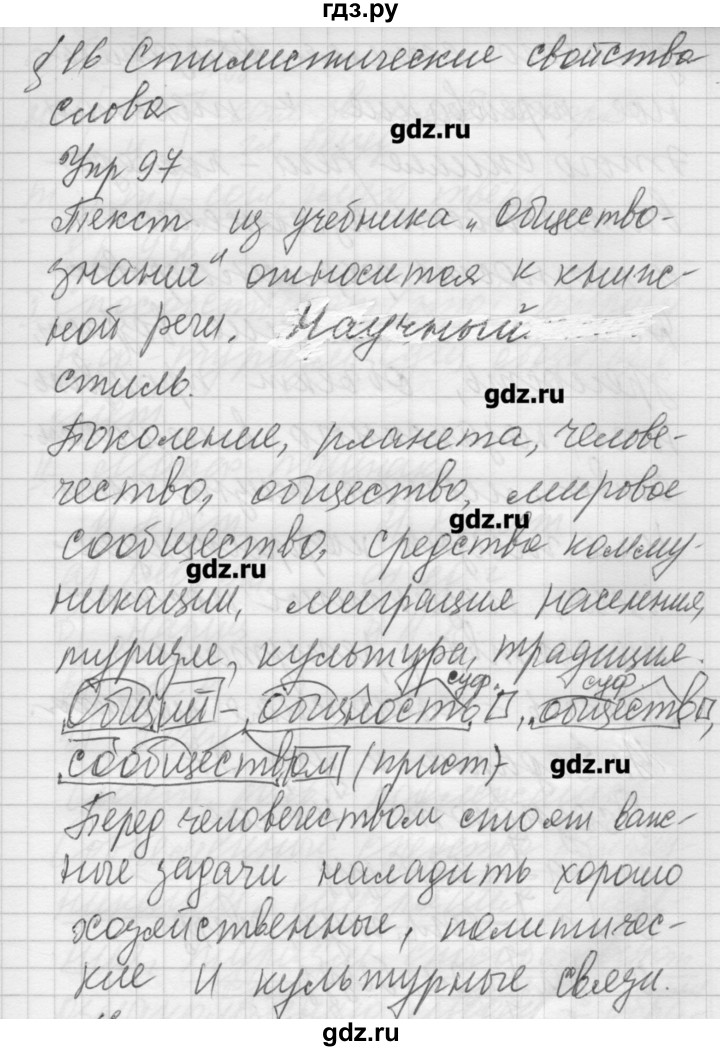 гдз.ру
§ 16 Стилистические свойства
слова
gdz.ru
Упр 97
Текст из учебника „Общество-
знание" относится к книж-
ной речи. Научный
стиль.
gdz.ru
Поколение, планета, челове-
чество, общество, мировое
gdz.ru
сообщество, средства комму-
gdz.ru
никации, миграция населения,
туризм, культура, традиция.
суф. суф
Общий - общность, общество,
сообществом (прист)
gdz.ru
Перед человечеством стоят важ-
ные задачи наладить хорошо
хозяйственные, политичес-
кие и культурные связи.
gdz.ru